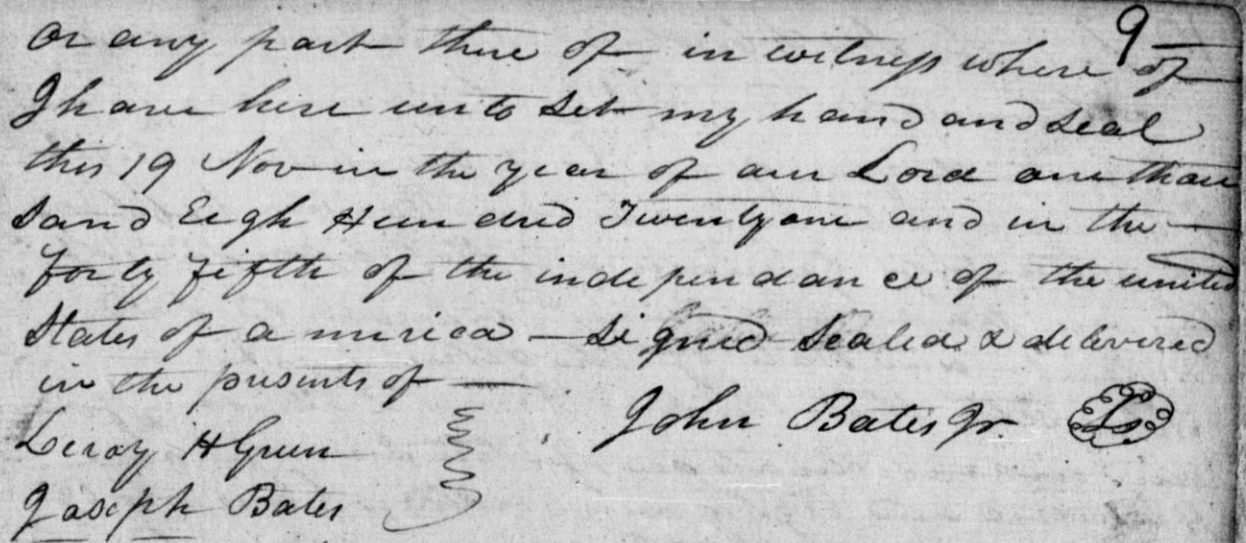 9
or any part there of in witness where of
I have here unto set my hand and seal
this 19 Nov in the year of our Lord one thou
sand Eigh Hundred Twenty one and in the
forty fifth of the independance of the united
States of america - Signed Sealed & delivered
in the presents of
John Bates Jr. LS
Leroy H Green
Joseph Bates